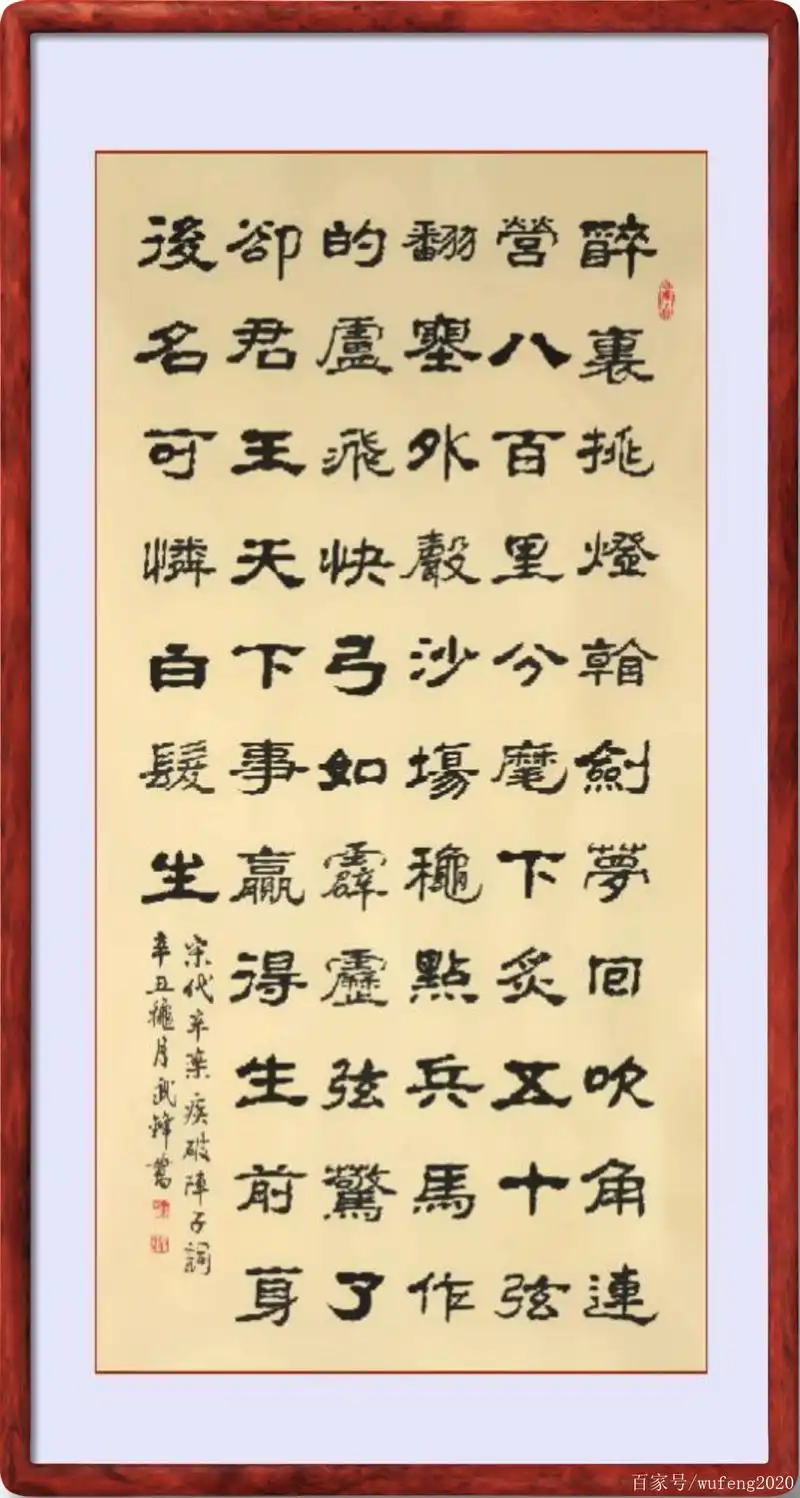 醉裏挑燈看劍夢回吹角連
營八百里分麾下炙五十弦
翻塞外聲沙場穐點兵馬作
的盧飛快弓如霹靂弦驚了
卻君王天下事贏得生前身
後名可憐白髮生
宋代辛棄疾破陣子詞
辛丑穐月武鋒書
百家号/wufeng2020